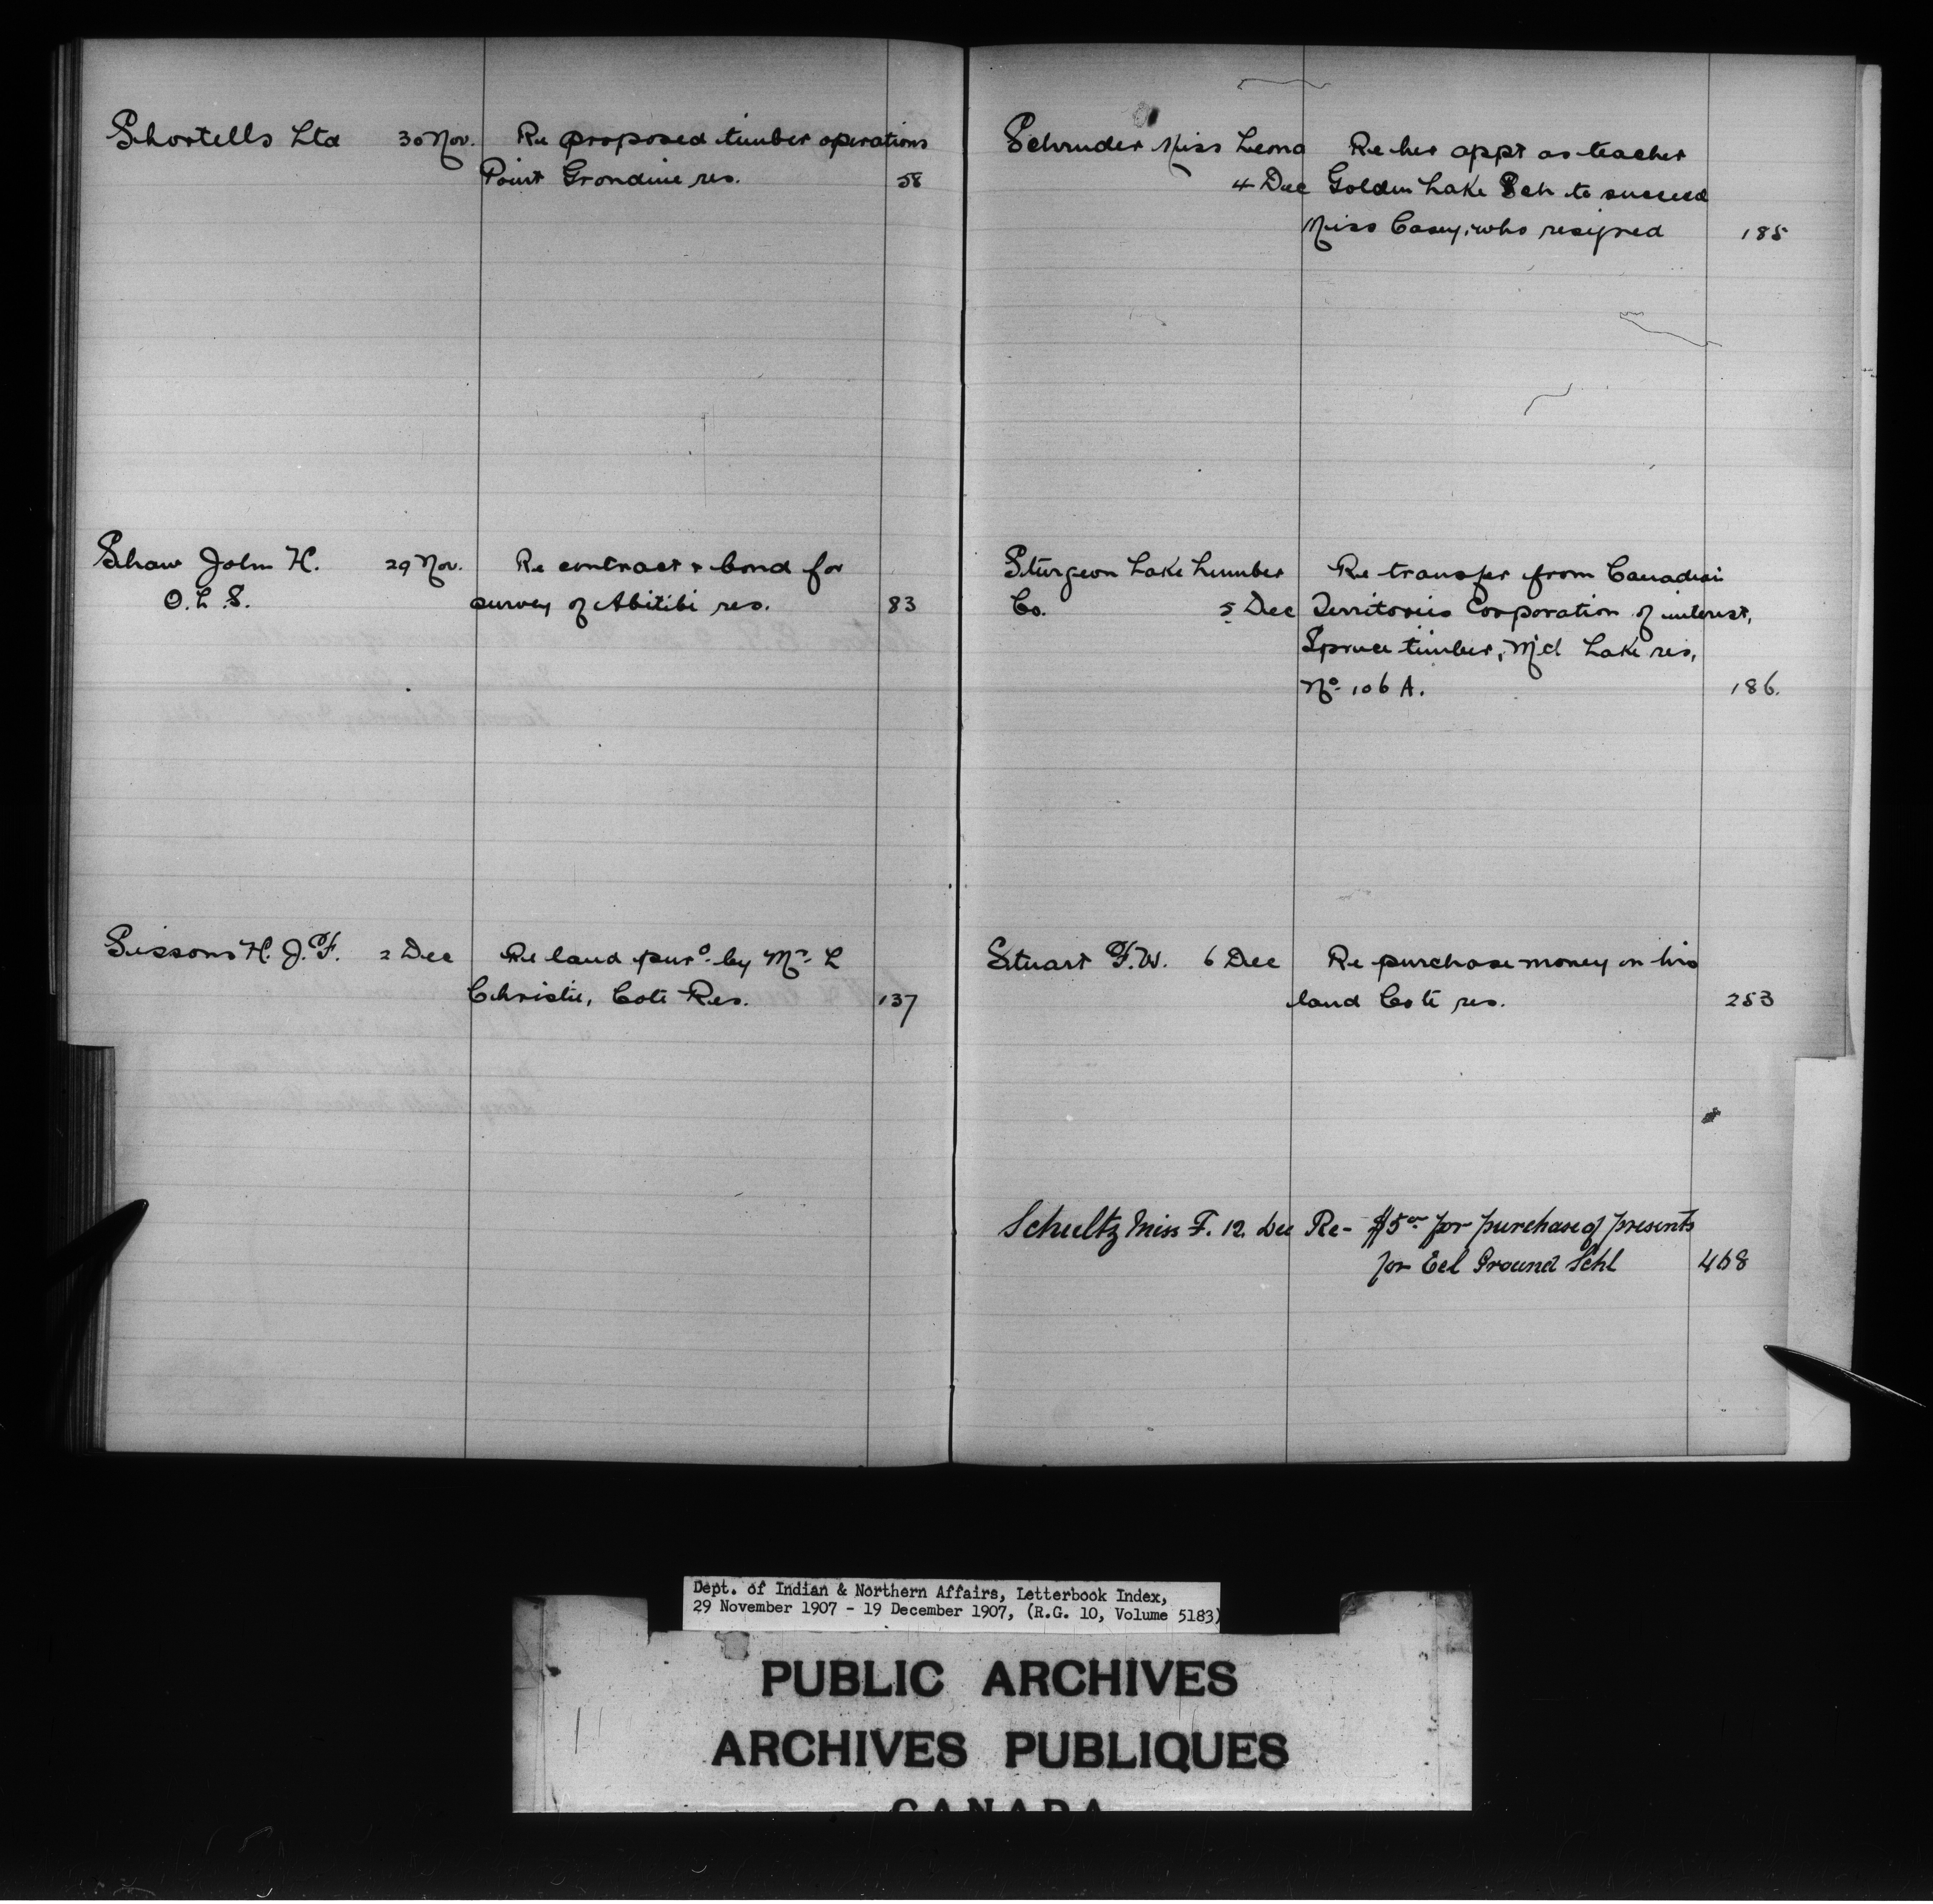 Shortells Ltd 30 Nov. Re proposed timber operations
Point Grondine res. 58
Shaw John H. 29 Nov. Re contract & bond for
O. L. S. survey of Abitibi res. 83
Sissons H. J. F. 2 Dec Re land purd. by Mr. L
Christie, Cote Res. 137
Schruder Miss Leona Re her appt as teacher
4 Dec Golden Lake Sch to succeed
Miss Casey, who resigned 185
Sturgeon Lake Lumber Re transfer from Canadian
Co. 5 Dec Territories Corporation of interest,
Spruce timber, Md Lake res,
No. 106 A. 186.
Stuart F. W. 6 Dec Re purchase money on his
land Cote res. 253
Schultz Miss F. 12. Dec Re- $5.00 for purchase of presents
for Eel Ground Schl 468
Dept. of Indian & Northern Affairs, Letterbook Index,
29 November 1907 - 19 December 1907, (R.G. 10, Volume 5183)
PUBLIC ARCHIVES
ARCHIVES PUBLIQUES
CANADA